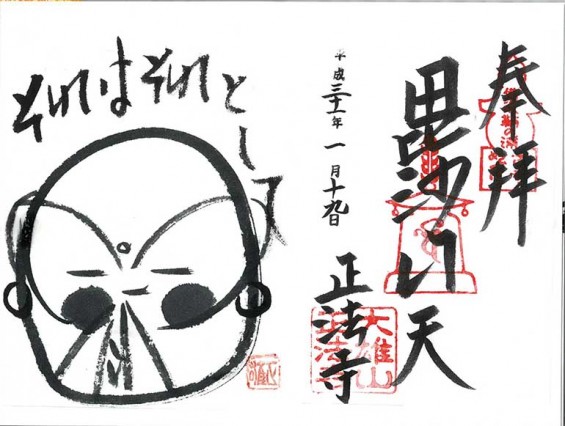 奉拝
毘沙門天
正法寺
平成三十一年一月十九日
それはそれとして
大雄山
正法寺